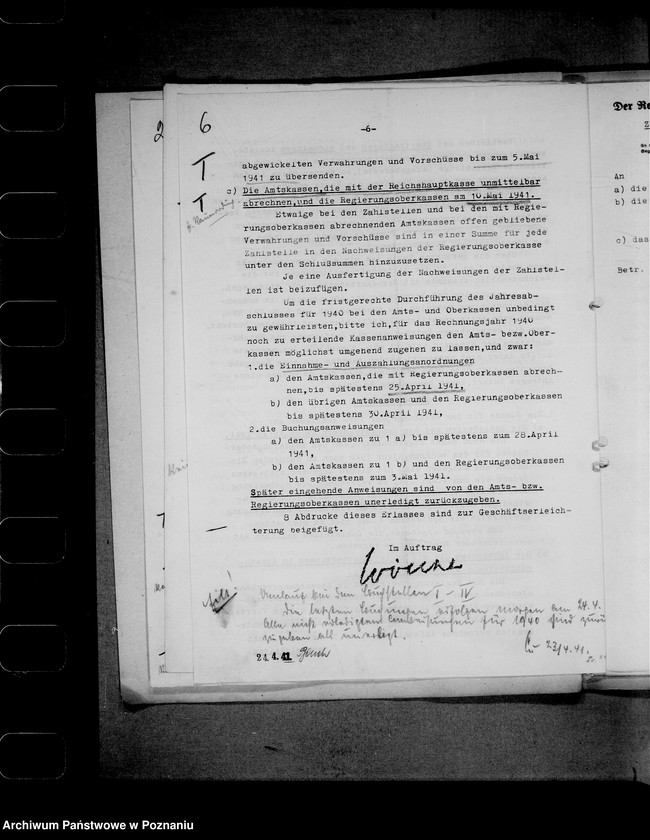 2
6
-6-
abgewickelten Verwahrungen und Vorschüsse bis zum 5.Mai
1941 zu übersenden.
c) Die Amtskassen,die mit der Reichshauptkasse unmittelbar
abrechnen,und die Regierungsoberkassen am 10.Mai 1941.
Etwaige bei den Zahlstellen und bei den mit Regie-
rungsoberkassen abrechnenden Amtskassen offen gebliebene
Verwahrungen und Vorschüsse sind in einer Summe für jede
Zahlstelle in den Nachweisungen der Regierungsoberkasse
unter den Schlußsummen hinzuzusetzen.
Je eine Ausfertigung der Nachweisungen der Zahlstel-
len ist beizufügen.
Um die fristgerechte Durchführung des Jahresab-
schlusses für 1940 bei den Amts- und Oberkassen unbedingt
zu gewährleisten,bitte ich,für das Rechnungsjahr 1940
noch zu erteilende Kassenanweisungen den Amts- bezw.Ober-
kassen möglichst umgehend zugehen zu lassen,und zwar:
1.die Einnahme- und Auszahlungsanordnungen
a) den Amtskassen,die mit Regierungsoberkassen abrech-
nen,bis spätestens 25.April 1941,
b) den übrigen Amtskassen und den Regierungsoberkassen
bis spätestens 30.April 1941,
2.die Buchungsanweisungen
a) den Amtskassen zu 1 a) bis spätestens zum 28.April
1941,
b) den Amtskassen zu 1 b) und den Regierungsoberkassen
bis spätestens zum 3.Mai 1941.
Später eingehende Anweisungen sind von den Amts- bzw.
Regierungsoberkassen unerledigt zurückzugeben.
8 Abdrucke dieses Erlasses sind zur Geschäftserleich-
terung beigefügt.
Im Auftrag
Umlauf bei den Buchstellen I - IV
Die letzten Buchungen erfolgen morgen am 24.4.
Alle nicht erledigten für 1940 sind zurück
zugeben als unerledigt.
23/4.41.
21.4.41
Der Re
An
a) die
b) die
c) das
Betr.
Archiwum Państwowe w Poznaniu